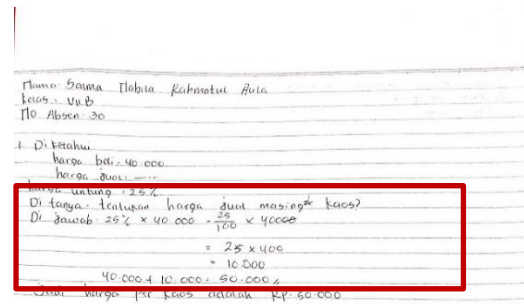 Nama: Salma Nabila Rahmatul Aula
Kelas: VII.B
No Absen: 30
1. Diketahui
harga beli = 40.000
harga jual = ....
harga untung = 25%
Di tanya: tentukan harga jual masing² kaos?
Di jawab: 25% × 40.000 = 25/100 × 40000
= 25 × 400
= 10.000
40.000 + 10.000 = 50.000
Jadi harga per kaos adalah Rp. 50.000